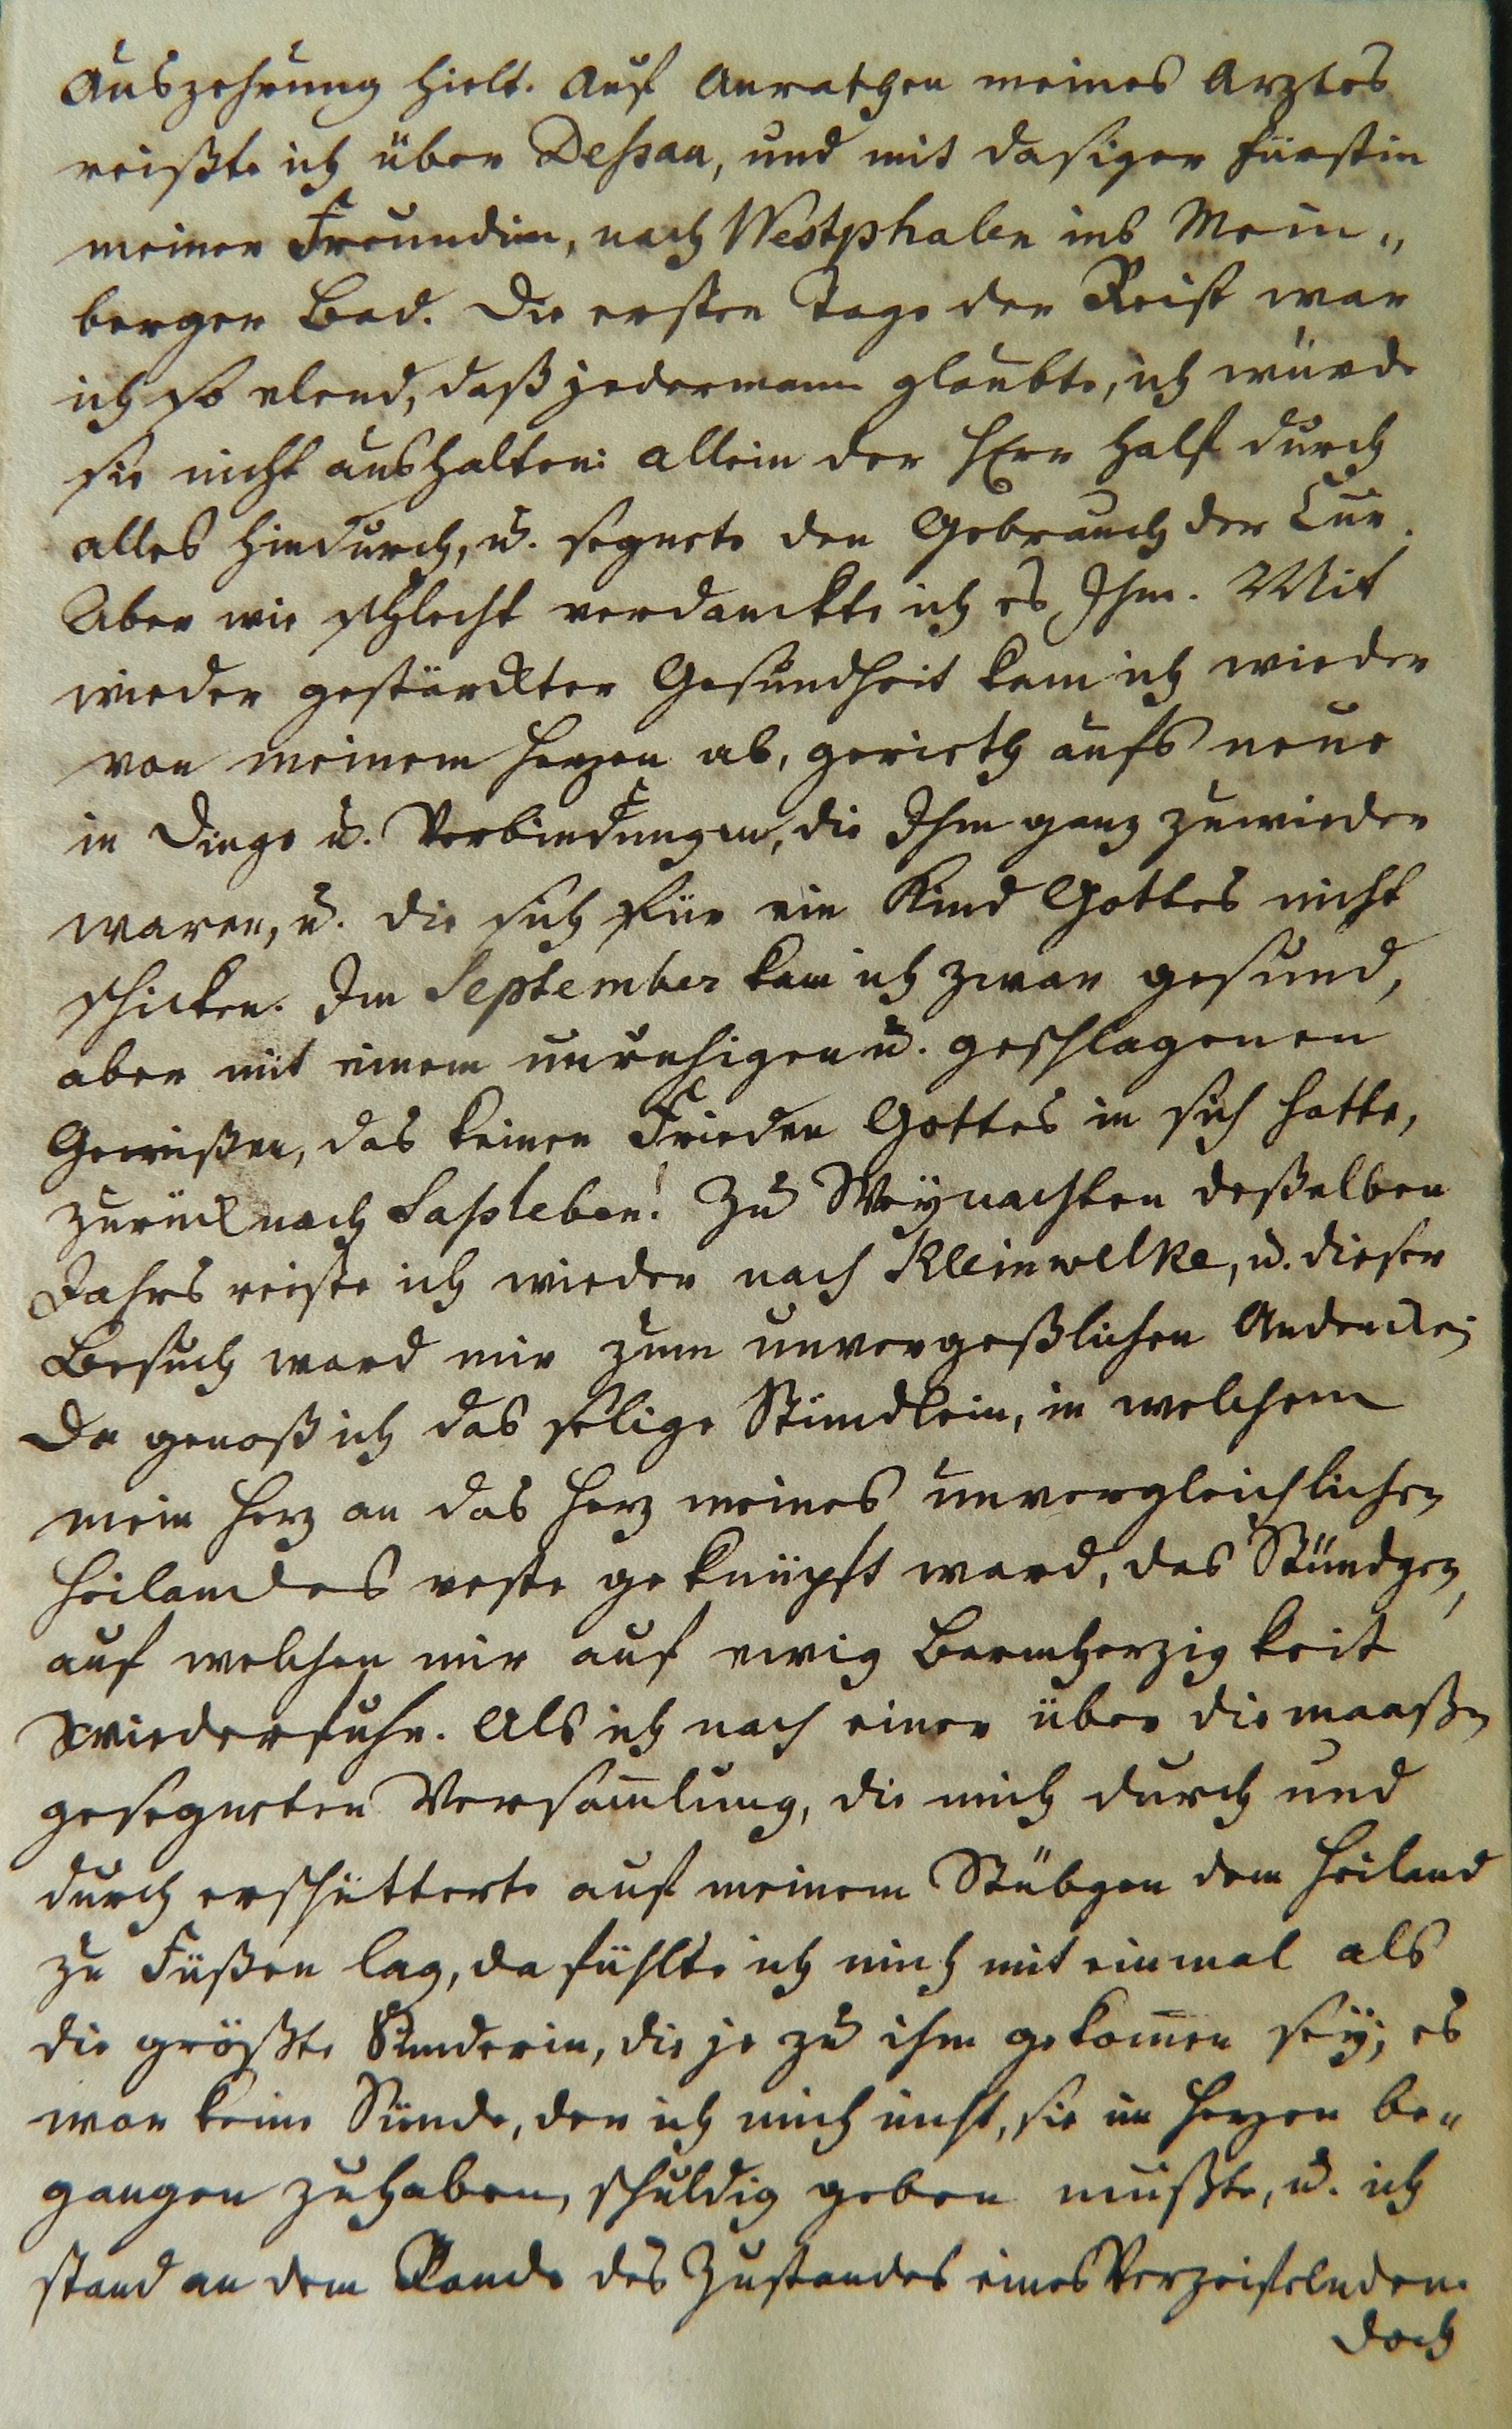 Auszehrung hielt. Auf Anrathen meines Arztes
reißte ich über Deßau, und mit dasiger Fürstin
meiner Freundin, nach Westphalen ins Mein„
berger Bad. Die ersten Tage der Reise war
ich so elend, daß jedermann glaubte, ich würde
sie nicht aushalten: allein der HErr half durch
alles hindurch, u. segnete den Gebrauch der Cur.
Aber wie schlecht verdanckte ich es Ihm. Mit
wieder gestärckter Gesundheit kam ich wieder
von meinem Herzen ab, gerieth aufs neue
in Dinge u. Verbindungen, die Ihm ganz zuwieder
waren, u. die sich für ein Kind Gottes nicht
schicken. Im September kam ich zwar gesund,
aber mit einem unruhigen u. geschlagenen
Gewißen, das keinen Frieden Gottes in sich hatte,
zurück nach Saßleben! Zu Weynachten deßelben
Jahrs reiste ich wieder nach Kleinwelke, u. dieser
Besuch ward mir zum unvergeßlichen Andencken;
Da genoß ich das selige Stündlein, in welchem
mein Herz an das Herz meines unvergleichlichen
Heilandes veste geknüpft ward, das Stündgen,
auf welchen mir auf ewig Barmherzigkeit
wiederfuhr. Als ich nach einer über die maaßen
gesegneten Versam̅lung, die mich durch und
durch erschütterte auf meinem Stübgen dem Heiland
zu Füßen lag, da fühlte ich mich mit einmal als
die größte Sünderin, die je zu ihm gekom̅en sey; es
war keine Sünde, der ich mich nicht, sie im Herzen be„
gangen zu haben, schuldig geben mußte, u. ich
stand an dem Rande des Zustandes eines Verzeifelnden.
Doch